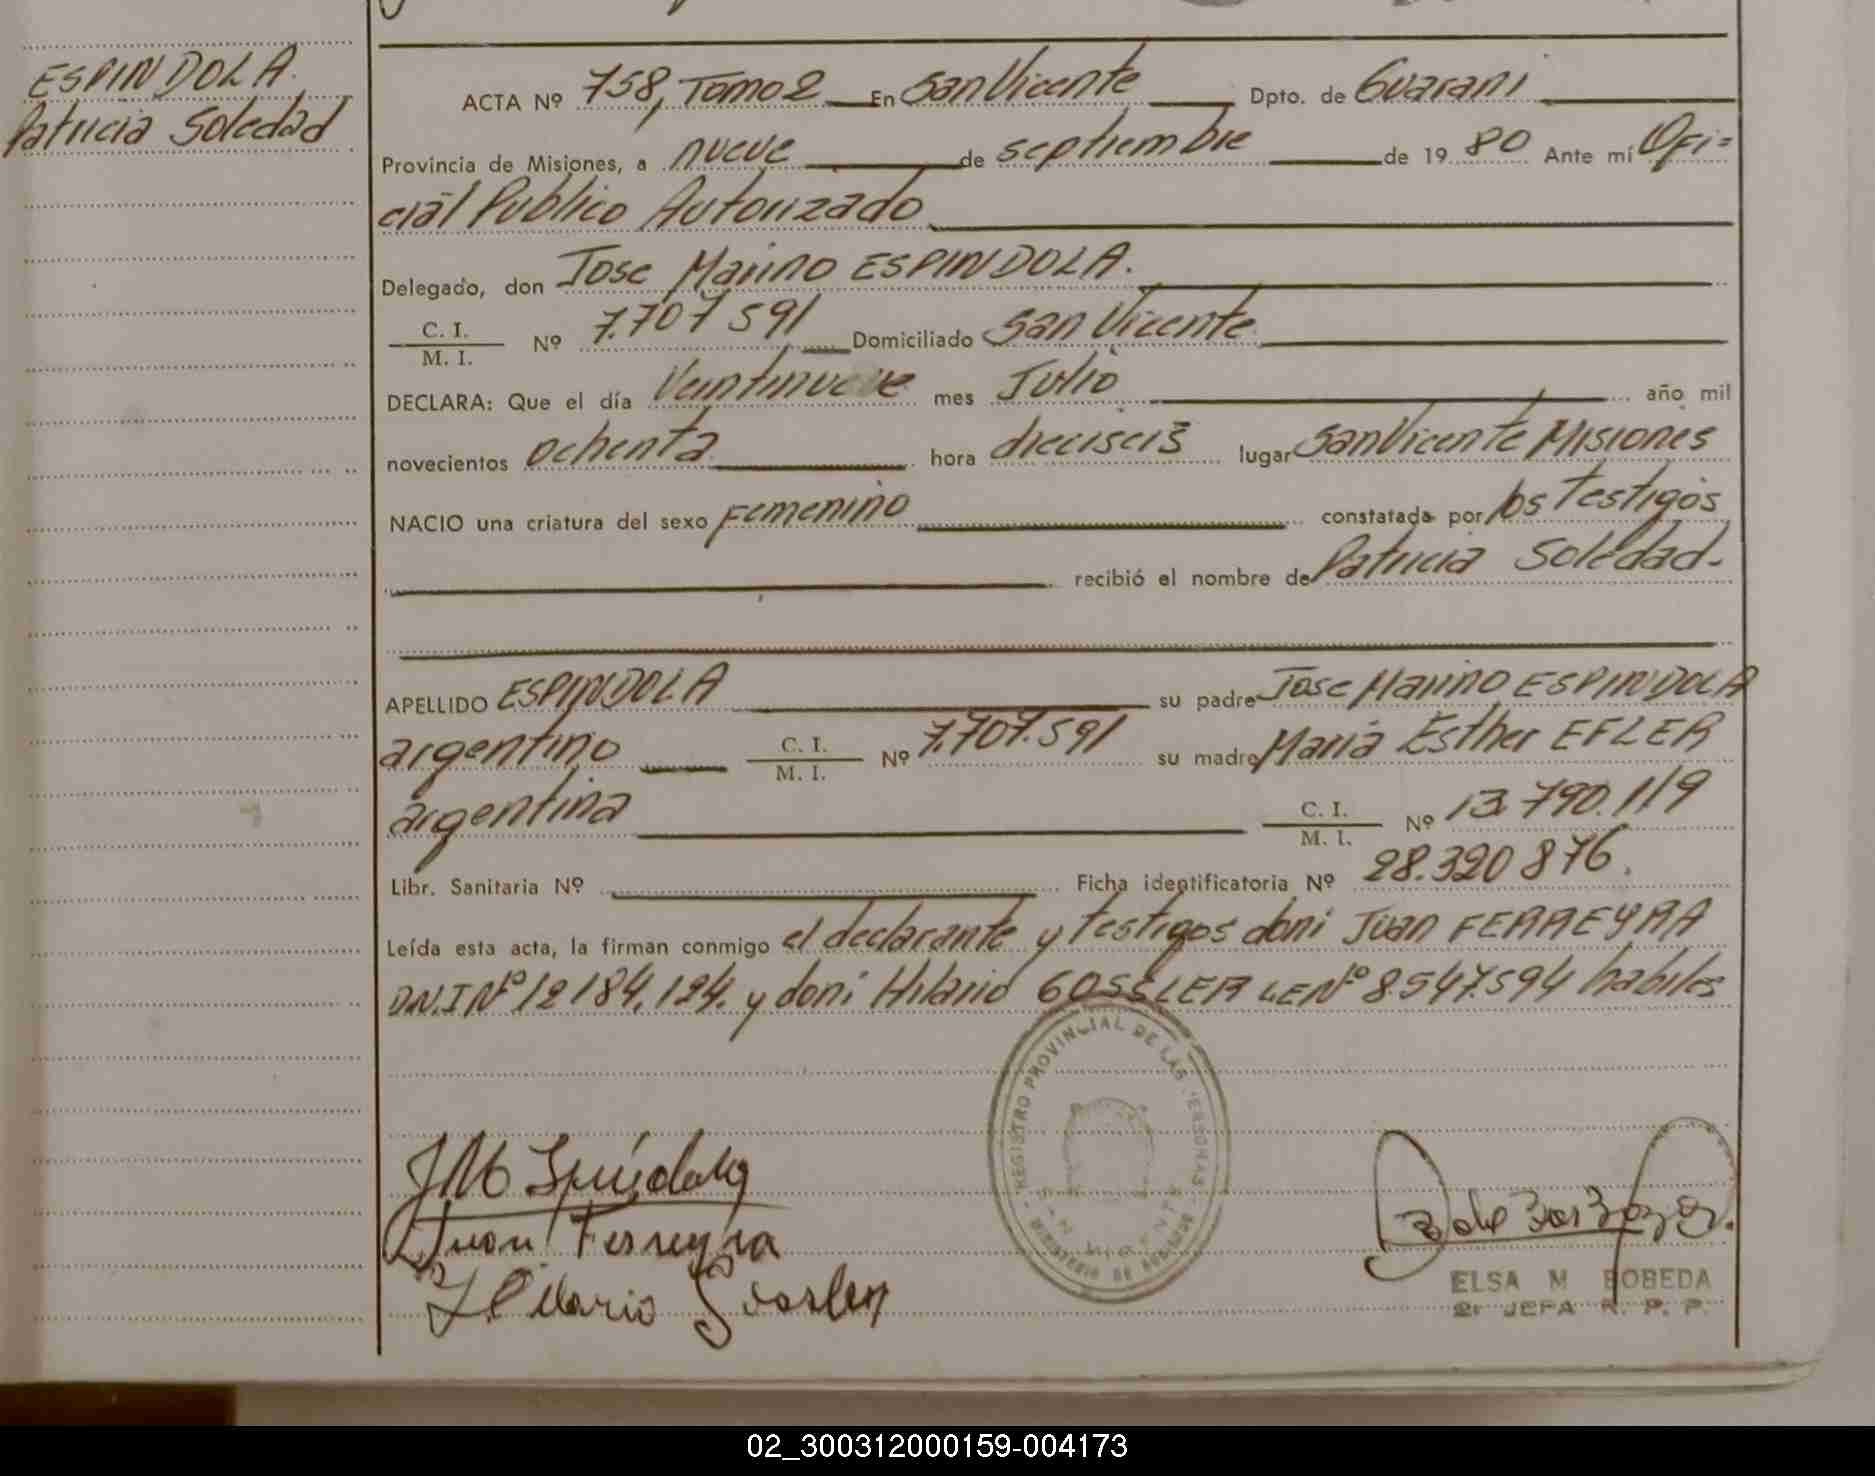 ESPINDOLA.
Patricia Soledad
ACTA Nº 758, Tomo 2 En San Vicente Dpto. de Guarani
Provincia de Misiones, a nueve de septiembre de 19 80 Ante mí Ofi=
cial Publico Autorizado
Delegado, don Jose Marino ESPINDOLA.
C. I.
M. I. Nº 7.707 591 Domiciliado San Vicente
DECLARA: Que el día Veintinueve mes Julio año mil
novecientos ochenta hora dieciseis lugar San Vicente Misiones
NACIO una criatura del sexo Femenino constatada por los Testigos
recibió el nombre de Patricia Soledad-
APELLIDO ESPINDOLA su padre Jose Marino ESPINDOLA
argentino C. I. M. I. Nº 7.707.591 su madre Maria Esther EFLER
argentina C. I. M. I. Nº 13.790.119
Libr. Sanitaria Nº Ficha identificatoria Nº 28.320 876.
Leída esta acta, la firman conmigo el declarante y testigos doni Juan FERREYRA
D.N.I Nº 12 184.124. y doni Hilario GOSSLER LE Nº 8.547.594 habiles
REGISTRO PROVINCIAL DE LAS PERSONAS
SAN VICENTE
MINISTERIO DE GOBIERNO
JM Spindola
Juan Ferreyra
Hilario Gossler
ELSA M BOBEDA
2ª JEFA R. P. P.
02_300312000159-004173